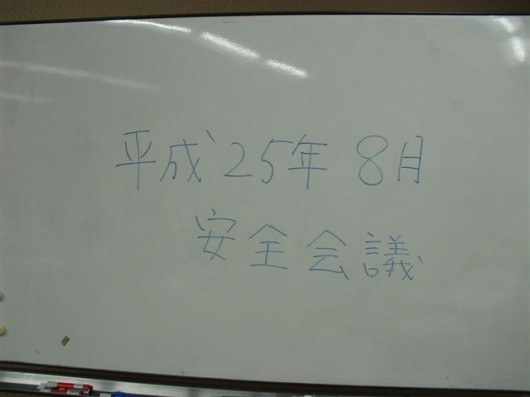 平成25年 8月
安全会議